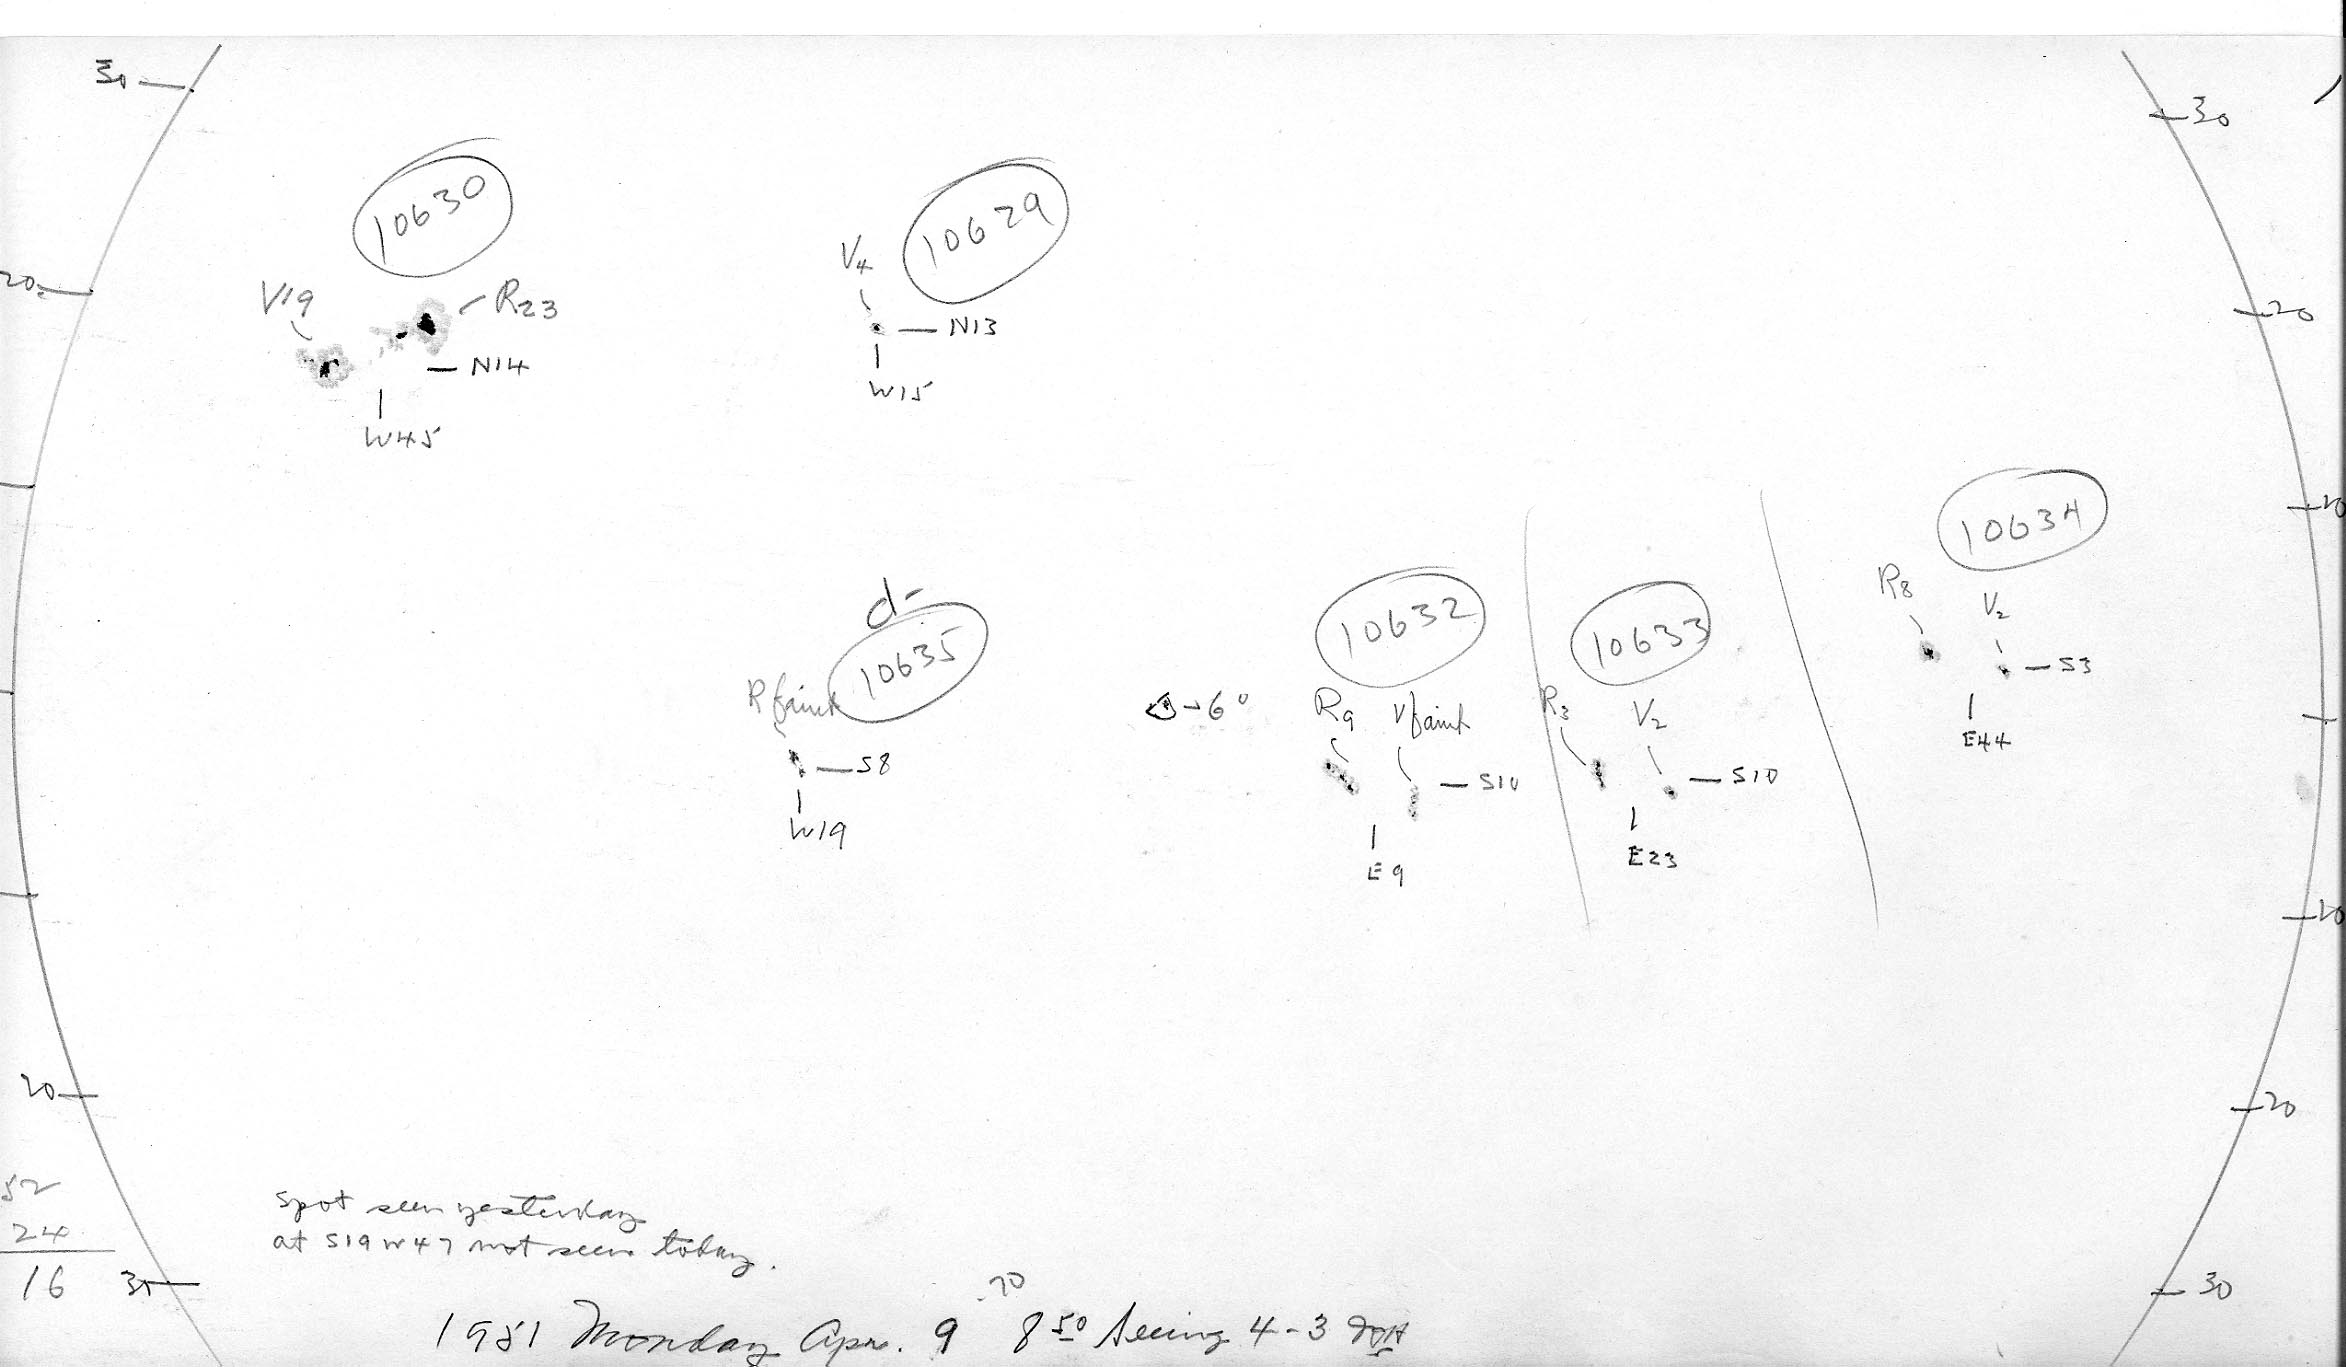 30
30
10630
10629
20
V19
R23
V4
N13
20
N14
W15
W45
10634
10
R8
V2
S3
E44
d-
10635
R faint
S8
W19
-6°
10632
R9
V faint
S10
E9
10633
R3
V2
S10
E23
10
20
20
52
24
16
spot seen yesterday
at S19 W47 not seen today.
30
30
.70
1951 Monday Apr. 9 8 50 Seeing 4-3